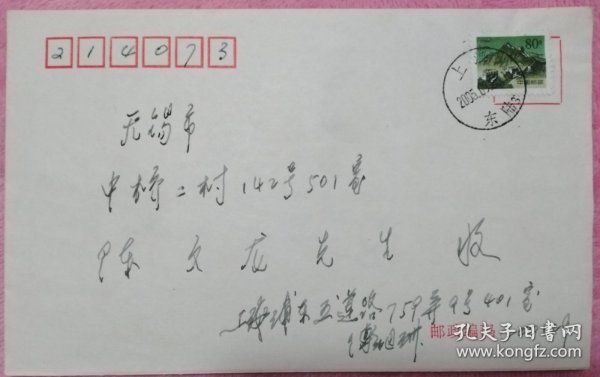 214073
80分
中国邮政
上
2005.
东
无锡市
中桥二村142号501室
陈文龙先生收
上海浦东五莲路759弄9号401室
邮政编码
孔夫子旧书网
www.kongfz.com